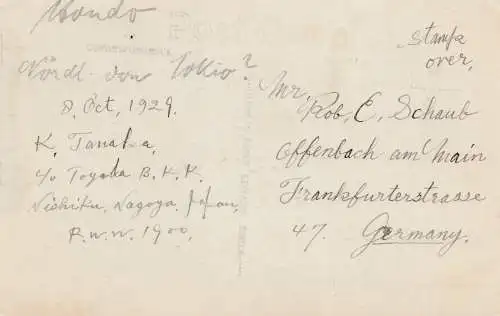 Hondo
Nördl. von Tokio?
8. Oct, 1929.
K. Tanaka,
c/o Toyoda B. K. K.
Nishiku, Nagoya, Japan,
R.W.W. 1900.
Stamp
over,
Mr. Rob, E, Schaub
Offenbach am Main
Frankfurterstraase
47. Germany.